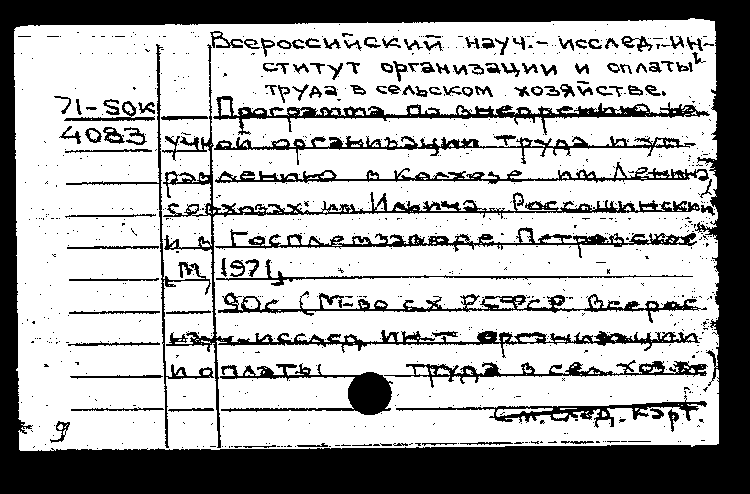 Всероссийский науч.-исслед. ин-
ститут организации и оплаты
труда в сельском хозяйстве.
71-50к Программа по внедрению на-
4083 учной организации труда и уп-
равлению в колхозе им. Ленина,
совхозах: им. Ильича, "Россошинский"
и в Госплемзаводе "Петровское"
[М, 1971].
90с (М-во с.х РСФСР Всерос
науч.-исслед. ин-т организации
и оплаты труда в сел. хоз-ве)
См. след. карт.
9